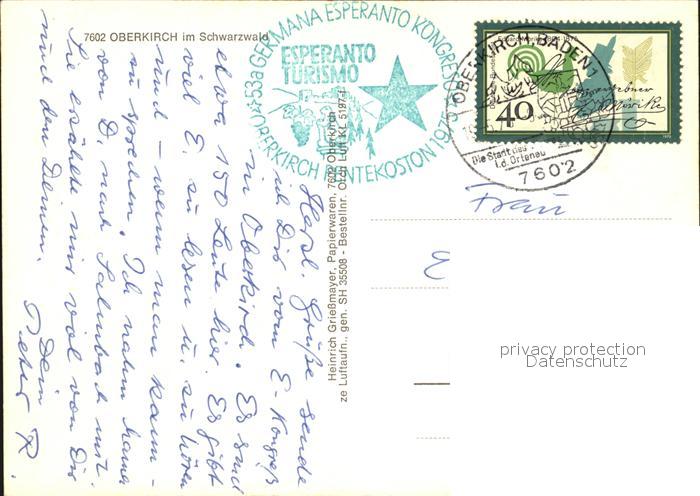 7602 OBERKIRCH im Schwarzwald
53a GERMANA ESPERANTO KONGRESO
ESPERANTO
TURISMO
OBERKIRCH PENTEKOSTON 1975
OBERKIRCH, BADEN 1
Die Stadt des
i.d. Ortenau
7602
40
Heinrich Grießmayer, Papierwaren, 7602 Oberkirch
ze Luftaufn., gen. SH 35508 - Bestellnr. Orch Luft KL 5197 f
Herzl. Grüße sende
ich Dir vom E-Kongreß
in Oberkirch. Es sind
etwa 150 Leute hier. Es gibt
viel E. zu lesen u. zu hören
und - wenn man kann -
zu sprechen. Ich nahm
von D. nach mit.
Sie erzählte mir viel von Dir
und den Deinen.
Dein
Peter R.
Frau
E
privacy protection
Datenschutz